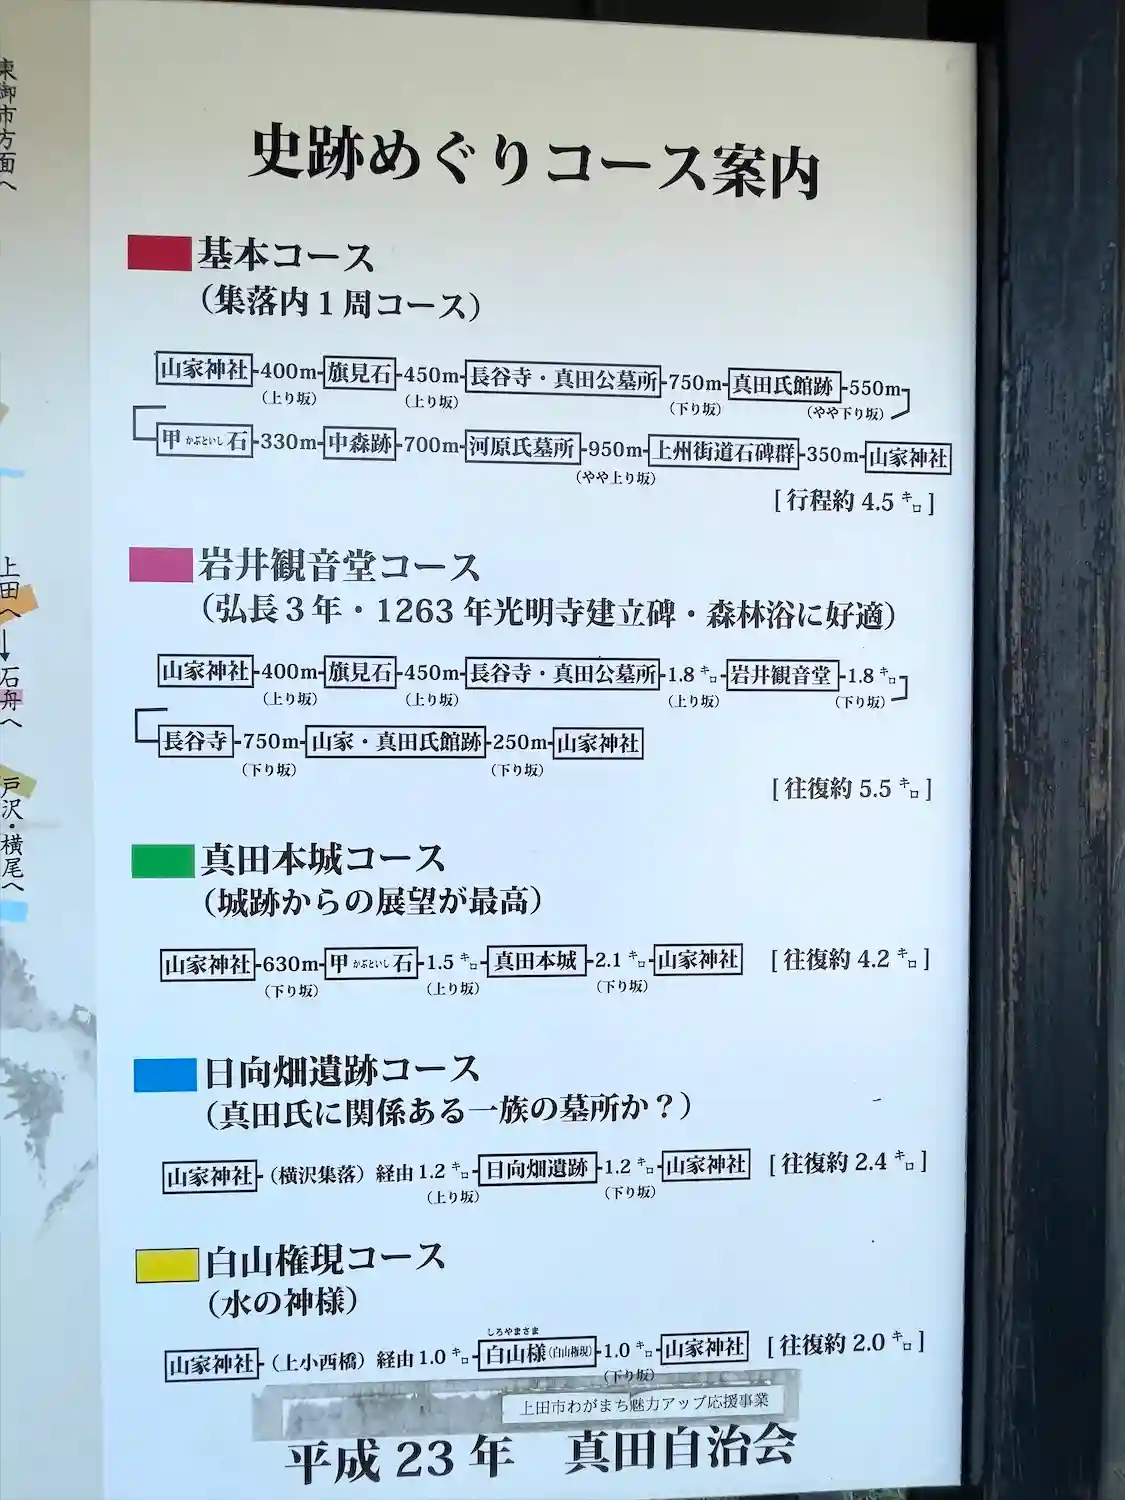 東御市方面へ
上田へ
↓
石舟へ
戸沢・横尾へ
史跡めぐりコース案内
基本コース
（集落内1周コース）
山家神社-400m-旗見石-450m-長谷寺・真田公墓所-750m-真田氏館跡-550m
（上り坂） （上り坂） （下り坂） （やや下り坂）
甲かぶといし石-330m-中森跡-700m-河原氏墓所-950m-上州街道石碑群-350m-山家神社
（やや上り坂）
［行程約 4.5 キロ］
岩井観音堂コース
（弘長3年・1263年光明寺建立碑・森林浴に好適）
山家神社-400m-旗見石-450m-長谷寺・真田公墓所-1.8 キロ-岩井観音堂-1.8 キロ
（上り坂） （上り坂） （上り坂） （下り坂）
長谷寺-750m-山家・真田氏館跡-250m-山家神社
（下り坂） （下り坂）
［往復約 5.5 キロ］
真田本城コース
（城跡からの展望が最高）
山家神社-630m-甲かぶといし石-1.5 キロ-真田本城-2.1 キロ-山家神社 ［往復約 4.2 キロ］
（下り坂） （上り坂） （下り坂）
日向畑遺跡コース
（真田氏に関係ある一族の墓所か？）
山家神社-（横沢集落）経由 1.2 キロ-日向畑遺跡-1.2 キロ-山家神社 ［往復約 2.4 キロ］
（上り坂） （下り坂）
白山権現コース
（水の神様）
しろやまさま
山家神社-（上小西橋）経由 1.0 キロ-白山様(白山権現)-1.0 キロ-山家神社 ［往復約 2.0 キロ］
（下り坂）
上田市わがまち魅力アップ応援事業
平成23年 真田自治会